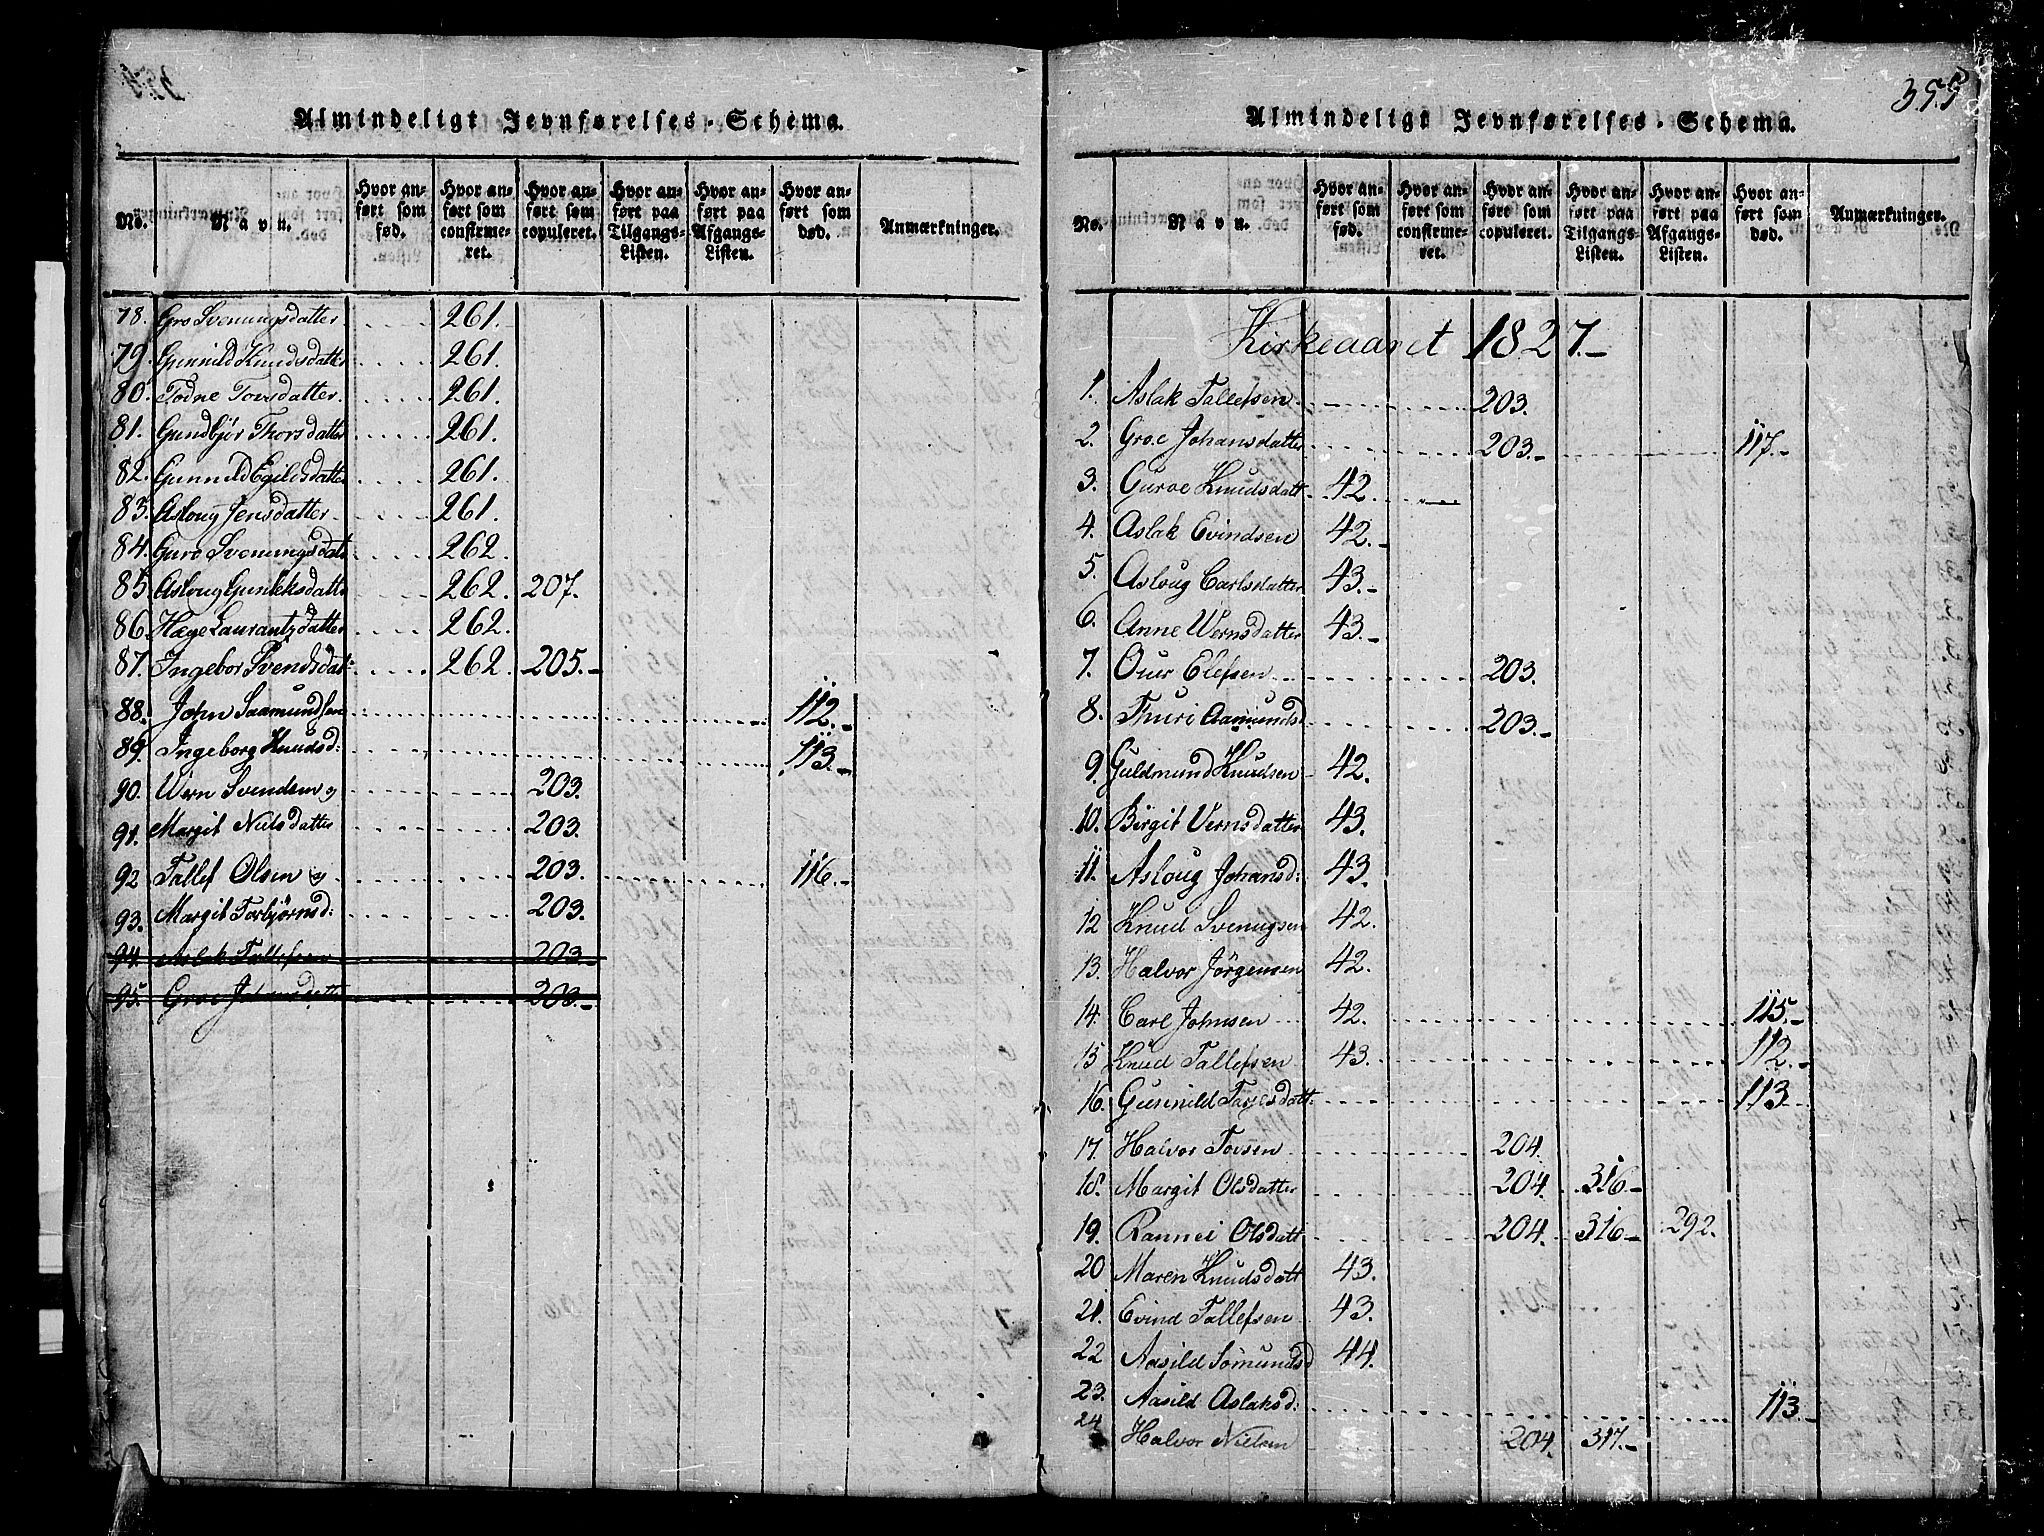 Almindeligt Jevnførelses-Schema.
No. | Navn. | Hvor anført som fød. | Hvor anført som confirmeret. | Hvor anført som copuleret. | Hvor anført paa Tilgangs-Listen. | Hvor anført paa Afgangs-Listen. | Hvor anført som død. | Anmærkninger.
78. Gro Svenungsdatter 261.
79. Gunnild Knudsdatter 261.
80. Todne Tovsdatter. 261.
81. Gundbjør Thorsdatter 261.
82. Gunnild Egildsdatter 261.
83. Aslaug Jensdatter 261.
84. Guro Svenungsdatt 262.
85. Asloug Gunleksdatt 262. 207.
86. Hæge Laurantzdatter 262.
87. Ingebor Svendsdat: 262. 205.-
88. John Saamundsen 112.-
89. Ingeborg Knudsd: 113.-
90. Wern Svendsen og 203.
91. Margit Nielsdatter 203.
92 Tallef Olsen og 203. 116.-
93. Margit Torbjørnsd: 203.
94. Aslak Tallefsen 203.-
95. Groe Johansdatter 203.-
355
Almindeligt Jevnførelses-Schema.
No. | Navn. | Hvor anført som fød. | Hvor anført som confirmeret. | Hvor anført som copuleret. | Hvor anført paa Tilgangs-Listen. | Hvor anført paa Afgangs-Listen. | Hvor anført som død. | Anmærkninger.
Kirkeaaret 1827.-
1. Aslak Tallefsen 203.
2. Groe Johansdatter 203.- 117.-
3. Guroe Knudsdatt 42.
4. Aslak Evindsen 42.-
5. Asloug Carlsdatter 43.-
6. Anne Wernsdatter 43.-
7. Ouer Elefsen 203.
8. Thuri Aamunds 203.-
9. Guldmund Knudsen 42.
10. Birgit Vernsdatter 43.
11. Asloug Johansd: 43.
12 Knud Svenugsen 42.
13. Halvor Jörgensen 42.
14. Carl Johnsen 42. 115.-
15 Knud Tallefsen 43. 112.-
16. Gunnild Tarjesdatt: 113
17. Halvor Tovsen 204.
18. Margit Olsdatter 204. 316.-
19. Rannei Olsdatt 204. 316- 292.
20 Maren Knudsdatt 43.
21. Evind Tallefsen 43.
22 Aasild Sömundsd 44.
23. Aasild Aslaksd: 113.-
24 Halvor Nielsen 204. 317.-